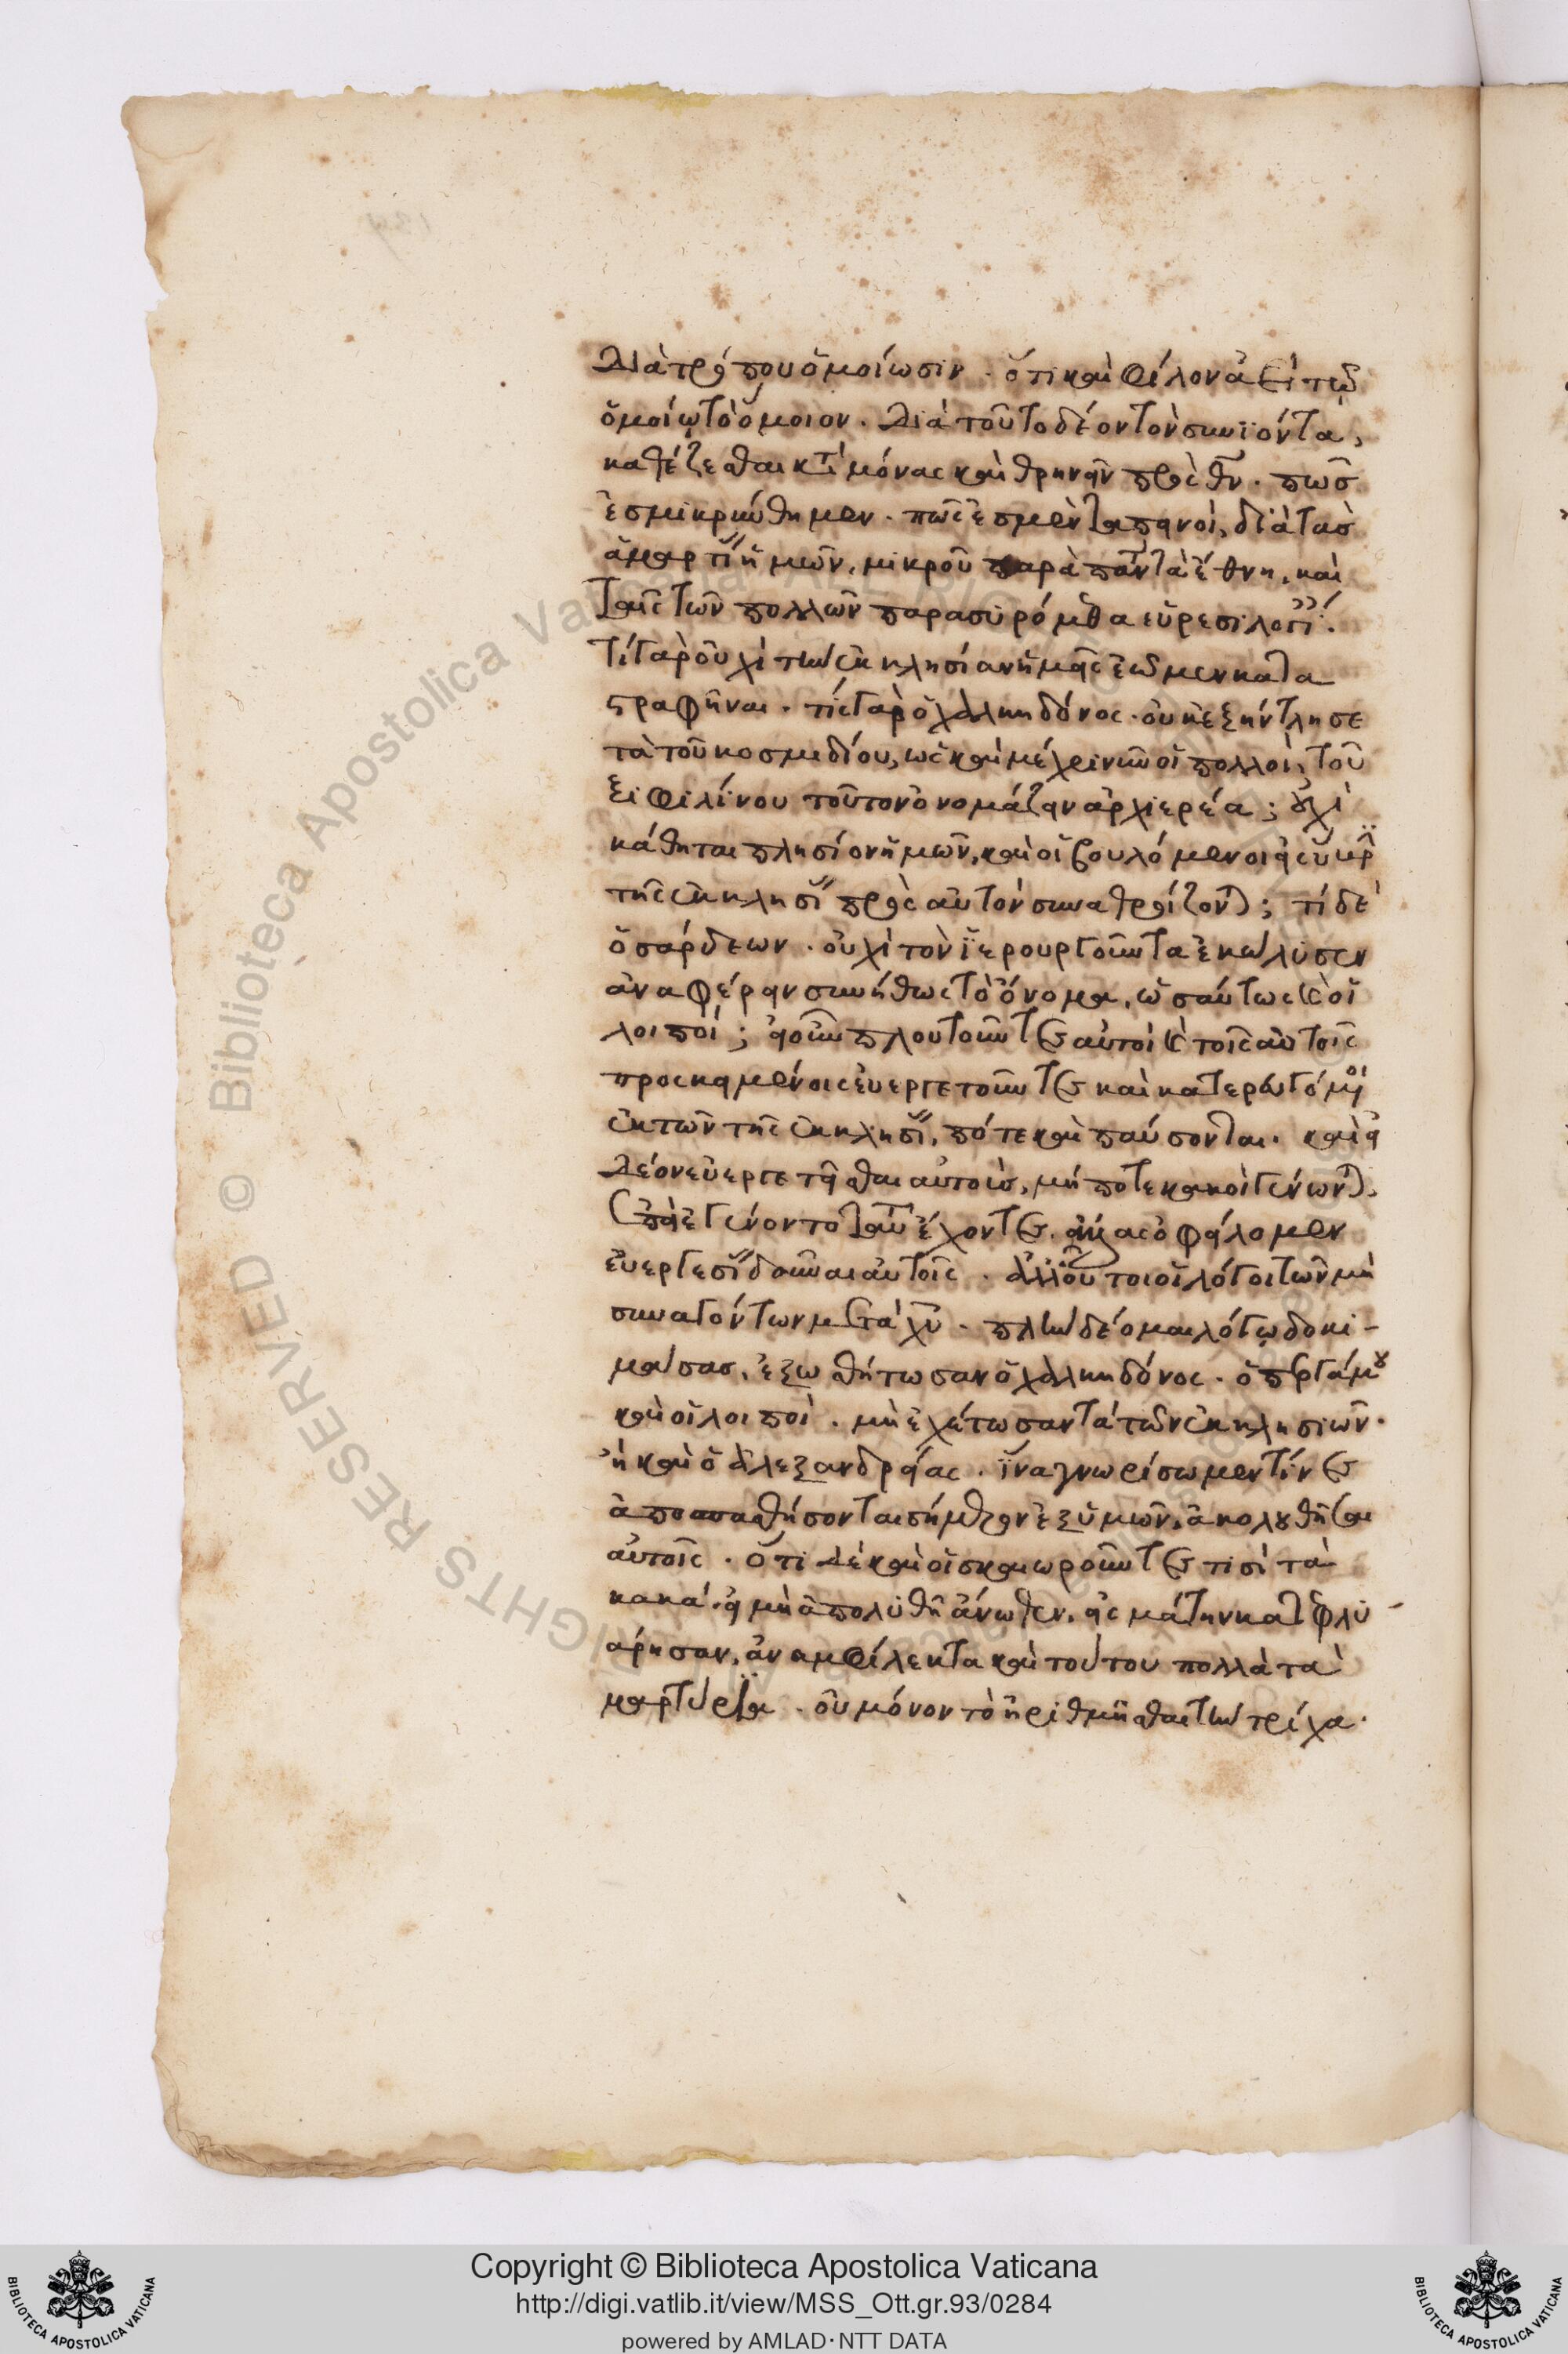 διὰ τρόπου ὁμοίωσιν. ὅτι καὶ φίλον ἀεὶ τῷ
ὁμοίῳ τὸ ὅμοιον. διὰ τοῦτο δέον τὸν συνϊόντα,
καθέζεσθαι κατὰ μόνας καὶ θρηνεῖν πρὸς θν. πῶς
ἐσμικρύνθημεν. πῶς ἐσμὲν ταπεινοὶ, διὰ τὰς
ἁμαρτίας ἡμῶν, μικροῦ παρὰ πάντα ἔθνη, καὶ
ταῖς τῶν πολλῶν παρασυρόμεθα εὑρεσιλογίαις.
τί γὰρ οὐχὶ τὴν ἐκκλησίαν ἡμᾶς ἐῶμεν κατα
στραφῆναι. τίς γὰρ ὁ χαλκηδόνος. οὐκ ἐξήντλησε
τὰ τοῦ κοσμιδίου, ὡς καὶ μέχρι νῦν οἱ πολλοὶ, τοῦ
ξιφιλίνου τοῦτον ὀνομάζειν ἀρχιερέα; οὐχὶ
κάθηται πλησίον ἡμῶν, καὶ οἱ βουλόμενοι
τῆς ἐκκλησίας πρὸς αὐτὸν συναθροίζονται; τί δὲ
ὁ σάρδεων. οὐχὶ τὸν ἱερουργοῦντα ἐκώλυσεν
ἀναφέρειν συνήθως τὸ ὄνομα, ὡσαύτως καὶ οἱ
λοιποί; πλουτοῦντες αὐτοὶ καὶ τοῖς αὐτοῖς
προσκειμένοις εὐεργετοῦντες καὶ
ἐκ τῶν τῆς ἐκκλησίας, πότε καὶ παύσονται. καὶ εἰ
δέον εὐεργετεῖσθαι αὐτοὺς, μήποτε κακοὶ γένωνται,
ἐπεὶ ἐγένοντο ταῦτα ἔχοντες. ὀφείλομεν
εὐεργεσίας δοῦναι αὐτοῖς. ἀλλ' οὗτοι οἱ λόγοι τῶν μὴ
συναγόντων μετὰ χῦ. πλὴν δέομαι λόγῳ δοκι-
μάσας, ἐξωθήτωσαν ὁ χαλκηδόνος. ὁ περγάμου
καὶ οἱ λοιποὶ. μὴ ἐχέτωσαν τὰ τῶν ἐκκλησιῶν.
ἢ καὶ ὁ ἀλεξανδρείας. ἵνα γνωρίσωμεν τίνες
ἀποσπασθήσονται σήμερον ἐξ ὑμῶν, ἀκολουθῆσαι
αὐτοῖς. ὅτι δὲ καὶ οἱ σκαιωροῦντες τισὶ τὰ
κακά. εἰ μὴ ἀπολυθῆ ἄνωθεν, εἰς μάτην κατεφλυ-
άρησαν, ἀναμφίλεκτα καὶ τούτου πολλὰ τὰ
μαρτύρια. οὐ μόνον τὸ ἠριθμῆσθαι τὴν τρίχα.
Copyright © Biblioteca Apostolica Vaticana
http://digi.vatlib.it/view/MSS_Ott.gr.93/0284
powered by AMLAD·NTT DATA